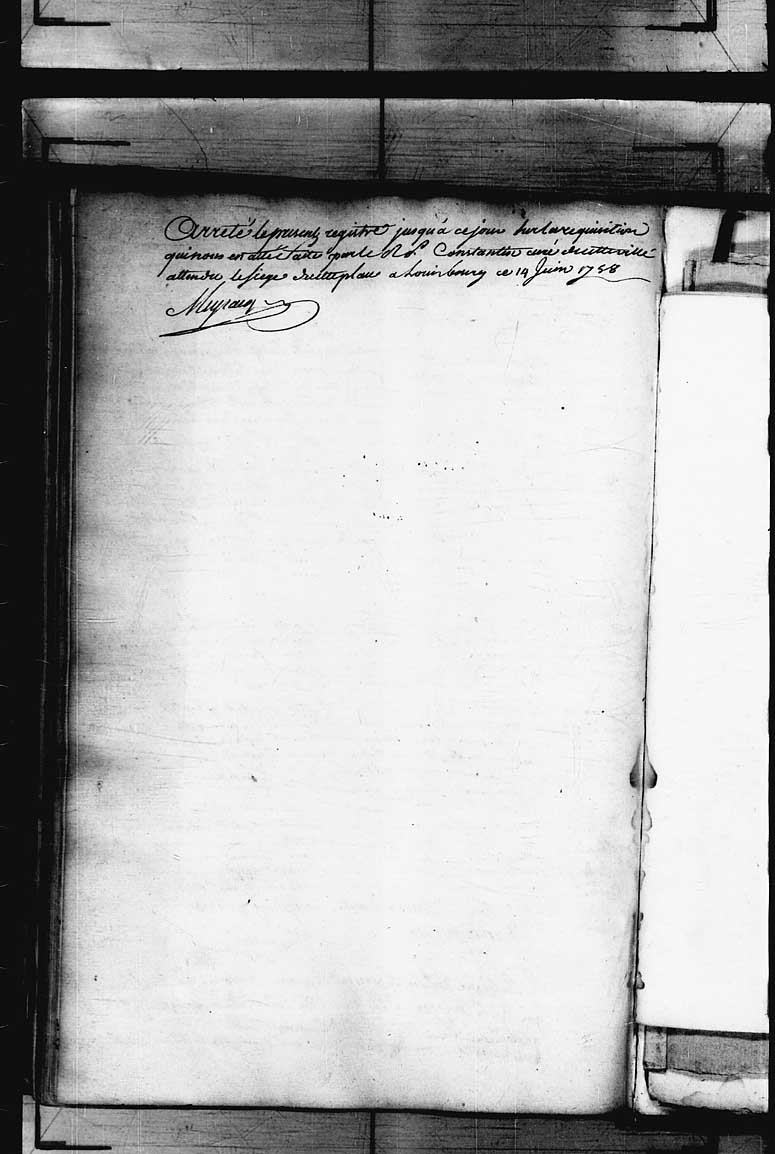 Arreté le present registre jusqu'a ce jour sur la requisition
qui nous en a été faite par le R. P. Constantin curé de cette ville
attendu le siege de cette place a Louisbourg ce 14 Juin 1758
Meyracq